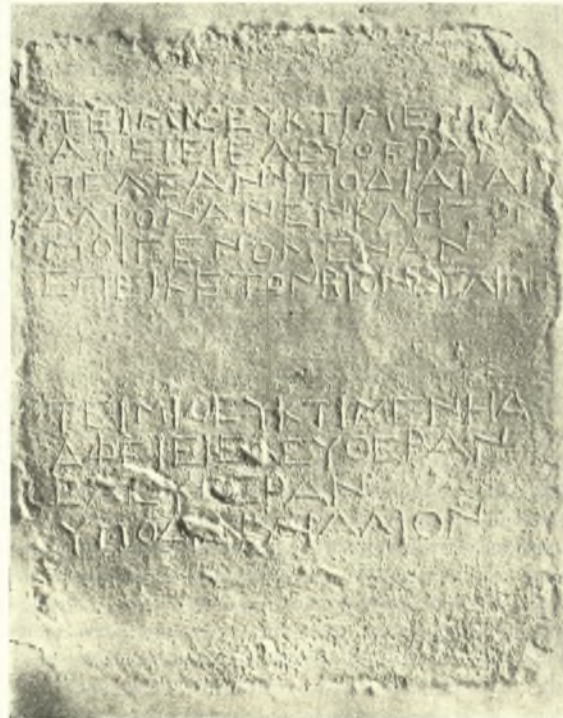 ΤΕΙΜΙΟΕΥΚΤΙΜΕΝΗΑ
ΑΦΕΙΕΙΕΛΕΥΘΕΡΑΝ
ΠΕΛΕΑΝΥΠΟΔΙΑΓΑΙ
ΑΛΙΟΝΑΝΕΝΚΛΗΤΟΝ
ΜΟΙΓΕΝΟΜΕΝΑΝ
ΕΠΕΙΚΕΤΟΝΒΙΟΝ

ΤΕΙΜΙΟΕΥΚΤΙΜΕΝΗΑ
ΑΦΕΙΕΙΕΛΕΥΘΕΡΑΝ
ΥΠΟΔΙΑΓΑΙΑΛΙΟΝ